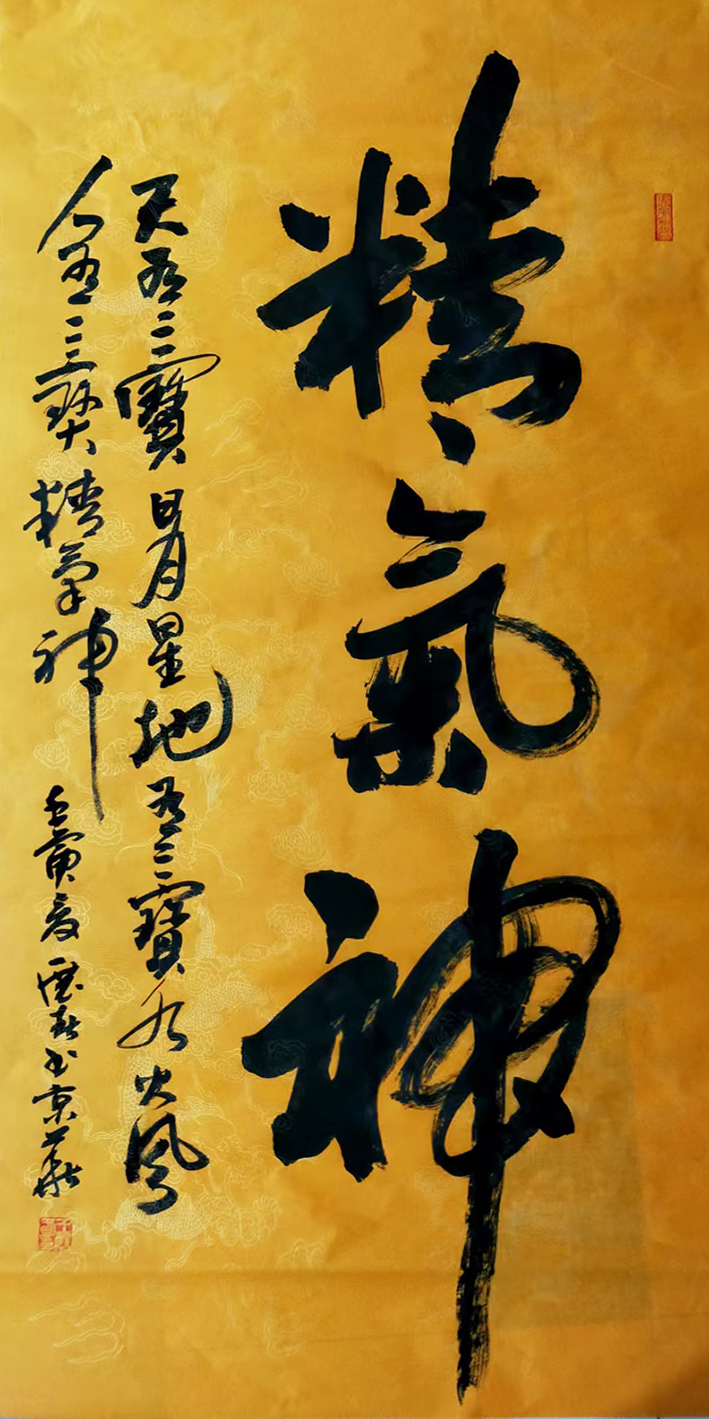 精氣神
天有三寶日月星地有三寶水火風
人有三寶精氣神 壬寅夏 書京華